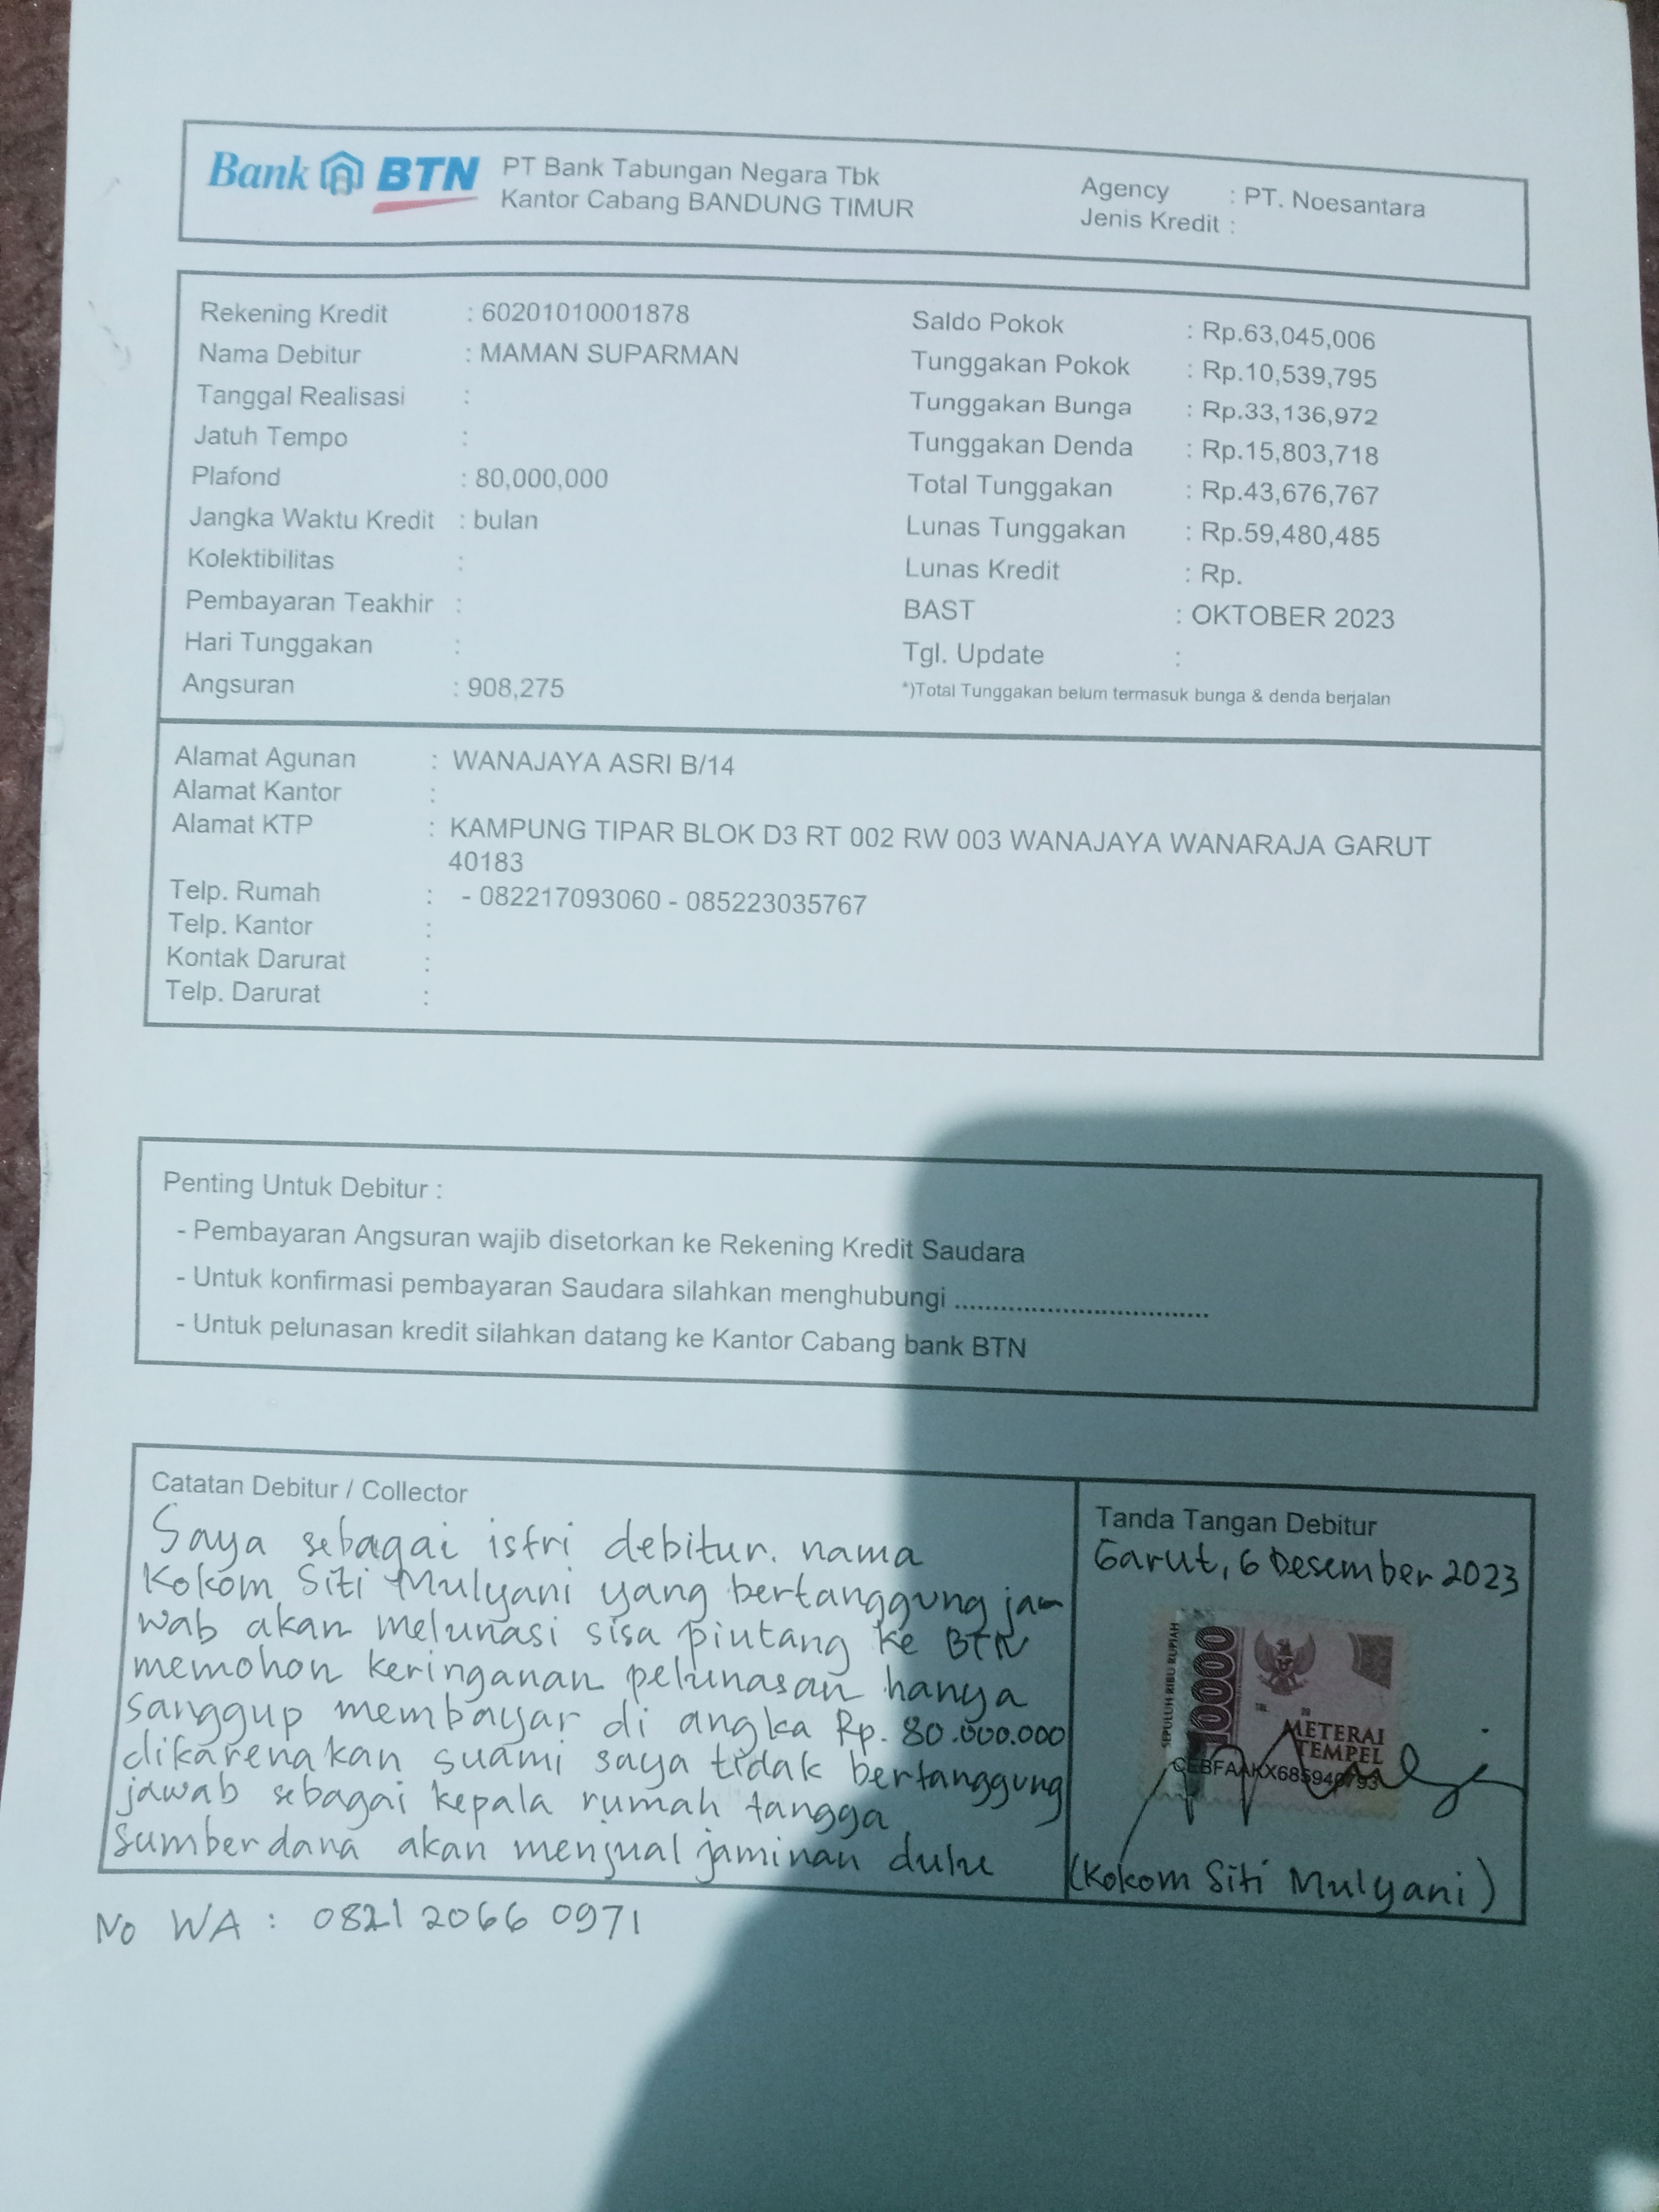 Bank BTN PT Bank Tabungan Negara Tbk
Kantor Cabang BANDUNG TIMUR
Agency : PT. Noesantara
Jenis Kredit :
Rekening Kredit : 60201010001878
Nama Debitur : MAMAN SUPARMAN
Tanggal Realisasi :
Jatuh Tempo :
Plafond : 80,000,000
Jangka Waktu Kredit : bulan
Kolektibilitas :
Pembayaran Teakhir :
Hari Tunggakan :
Angsuran : 908,275
Saldo Pokok : Rp.63,045,006
Tunggakan Pokok : Rp.10,539,795
Tunggakan Bunga : Rp.33,136,972
Tunggakan Denda : Rp.15,803,718
Total Tunggakan : Rp.43,676,767
Lunas Tunggakan : Rp.59,480,485
Lunas Kredit : Rp.
BAST : OKTOBER 2023
Tgl. Update :
*)Total Tunggakan belum termasuk bunga & denda berjalan
Alamat Agunan : WANAJAYA ASRI B/14
Alamat Kantor :
Alamat KTP : KAMPUNG TIPAR BLOK D3 RT 002 RW 003 WANAJAYA WANARAJA GARUT
40183
Telp. Rumah : - 082217093060 - 085223035767
Telp. Kantor :
Kontak Darurat :
Telp. Darurat :
Penting Untuk Debitur :
- Pembayaran Angsuran wajib disetorkan ke Rekening Kredit Saudara
- Untuk konfirmasi pembayaran Saudara silahkan menghubungi ..................................
- Untuk pelunasan kredit silahkan datang ke Kantor Cabang bank BTN
Catatan Debitur / Collector
Saya sebagai istri debitur. nama
Kokom Siti Mulyani yang bertanggung ja-
wab akan melunasi sisa piutang ke BTN
memohon keringanan pelunasan hanya
sanggup membayar di angka Rp. 80.000.000
dikarenakan suami saya tidak bertanggung
jawab sebagai kepala rumah tangga
Sumber dana akan menjual jaminan dulu
Tanda Tangan Debitur
Garut, 6 Desember 2023
SEPULUH RIBU RUPIAH
10000
METERAI
TEMPEL
(Kokom Siti Mulyani)
No WA : 0821 2066 0971